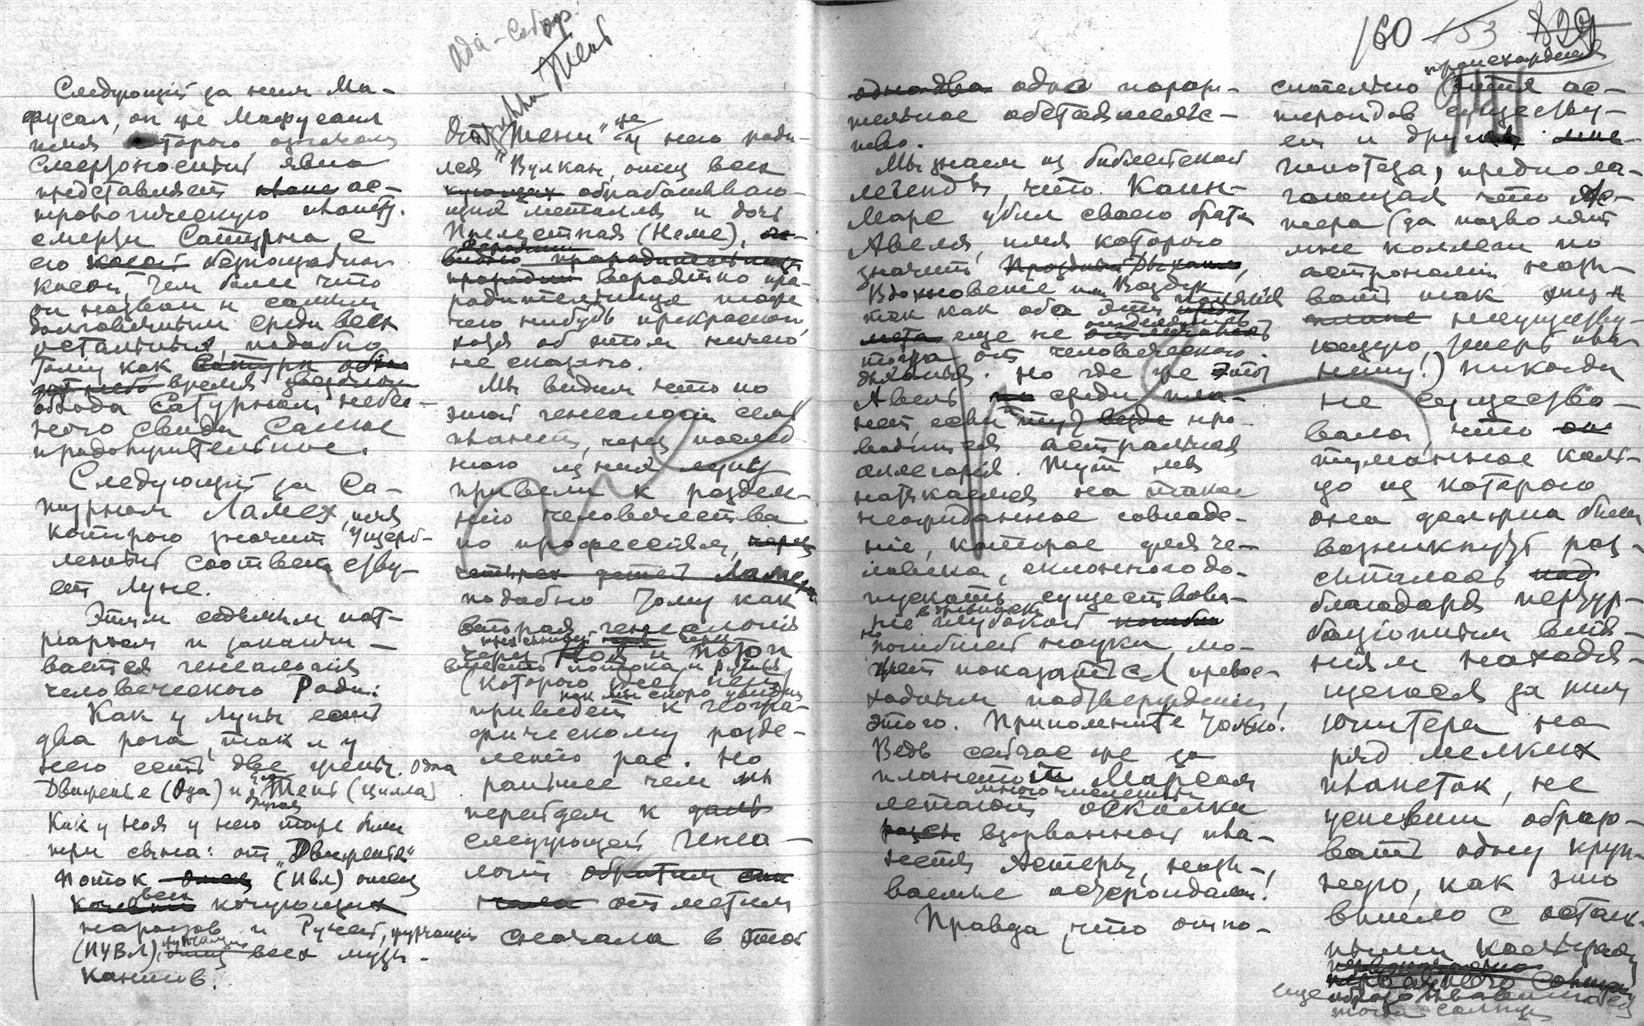 Следующій за ним Ма-
фусал, он же Мафусаил
имя которого означает
смертоносный явно
представляет ас-
трологическую планету
смерти Сатурна с
его безпощадной
косой, тем более что
он назван и самым
долговечным среди всех
остальных, подобно
тому как
время звездного
обхода Сатурном небес-
ного свода самое
продолжительное.
Следующій за Са-
турном Ламех, имя
которого значит ущерб-
ленный соответству-
ет Луне.
Этим седьмым пат-
риархом и заканчи-
вается генеалогия
человеческого Рода.
Как у луны есть
два рога, так и у
него есть две жены. одна
Движенье (Ада) и Тень (Цилла)
другая
Как у Ноя у него тоже были
три сына: от "Движенья"
Поток (Ивл) отец
всех кочующих
народов и Ручей, журчащій
(ИУВЛ), отец всех музы-
кантов.
Ада-
Цилла Тень
От "Тени" же у него роди-
лся "Вулкан, отец всех
обрабатываю-
щих металлы и дочь
Прелестная (Неме),
вероятно пра-
родительница тоже
чего нибудь прекрасного,
хотя об этом ничего
не сказано.
Мы видим что по
этой генеалогіи семь
планет, через послед-
нюю из них луну
привели к разделе-
нію человечества
по профессіям,
подобно тому как
вторая генеалогія
через Ноя и потоп
(которого здесь нет)
как мы скоро увидим
приведет к геогра-
фическому разде-
ленію рас. Но
раньше чем мы
перейдем к
следующей генеа-
логіи
отметим
сначала в этой
160 153 829
одно порази-
тельное обстоятельс-
тво.
Мы знаем из библейской
легенды, что Каин-
Марс убил своего брата
Авеля, имя которого
значит
Вдохновение или Воздух
так как оба эти понятія
еще не
тогда от человеческого
дыханья. Но где же этот
Авель среди пла-
нет если тут про-
водится астральная
аллегорія. Тут мы
натыкаемся на такое
неожиданное совпаде-
ніе, которое для че-
ловека, склонного до-
пускать существова-
ніе в древности
глубокой
но погибшей науки, мо-
жет показаться превос-
ходным подтвержденіем
этого. Припомните только!
Ведь сейчас же за
планетой Марсом
многочисленные
летают осколки
взорванной пла-
неты Астеры, назы-
ваемые астероидами!
Правда, что отно-
происхождения
сительно ас-
тероидов существу-
ет и другая
гипотеза, предпола-
гающая что Ас-
тера (да позволят
мне коллеги по
астрономіи назы-
вать так эту
несуществу-
ющую теперь пла-
нету!) никогда
не существо-
вала, что
туманное коль-
цо из которого
она должна была
возникнуть раз-
сыпалось
благодаря пертур-
баціонным влія-
ніям находя-
щегося за ним
Юпитера на
ряд мелких
планеток, не
успевши образо-
вать одну круп-
ную, как это
вышло с осталь-
ными кольцами
еще
тогда солнца